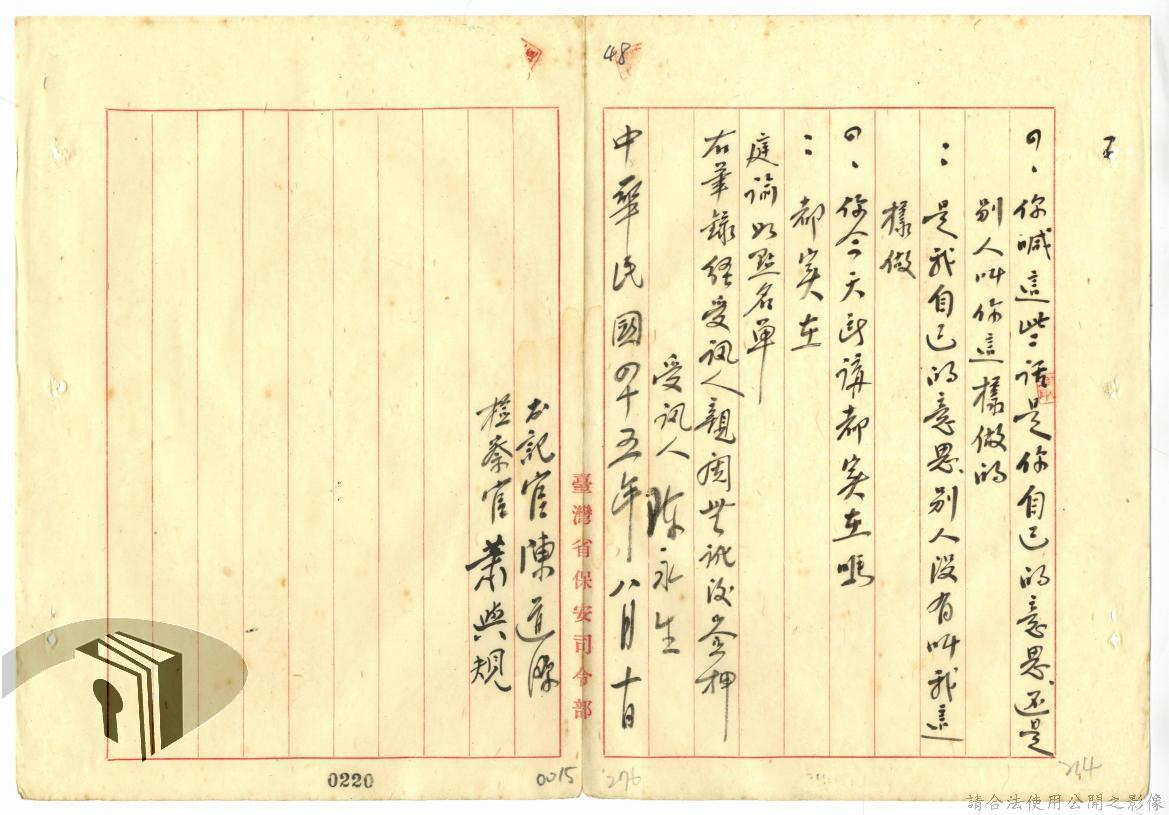 48
五
四、你喊這些話是你自己的意思还是
別人叫你這樣做的
：是我自己的意思別人沒有叫我這
樣做
四、你今天所講都實在嗎
：都實在
庭諭如點名單
右筆錄經受訊人親閱無訛後簽押
受訊人 陳永生
中華民國四十五年八月十日
臺灣省保安司令部
書記官陳道
檢察官 蕭與規
0220
0015
276
274
請合法使用公開之影像